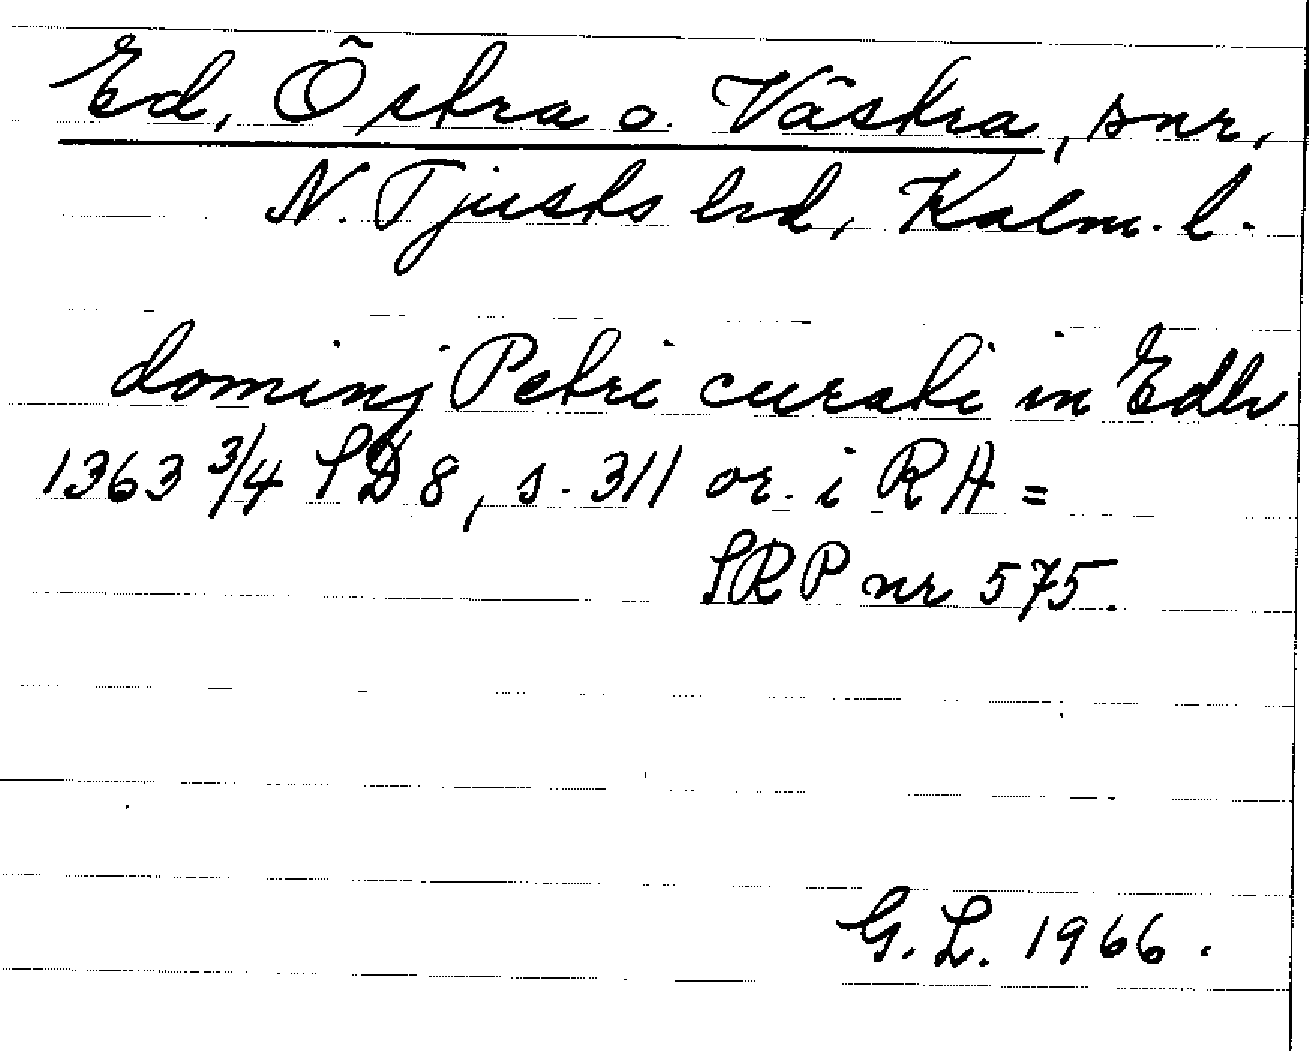 Ed, Östra o. Västra, snr,
N. Tjusts hd, Kalm. l.
dominj Petri curati in Edh
1363 3/4 SD 8, s. 311 or. i RA =
SRP nr 575.
G. L. 1966.